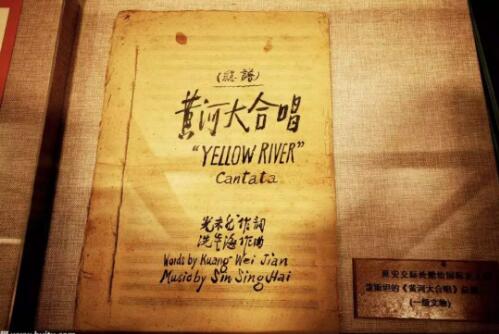 (總譜)
黄河大合唱
"YELLOW RIVER"
Cantata
光未然作詞
冼星海作曲
Words by Kuang Wei Jian
Music by Sin Sing Hai
延安交际处赠给国际友人
的《黄河大合唱》总谱
(一级文物)